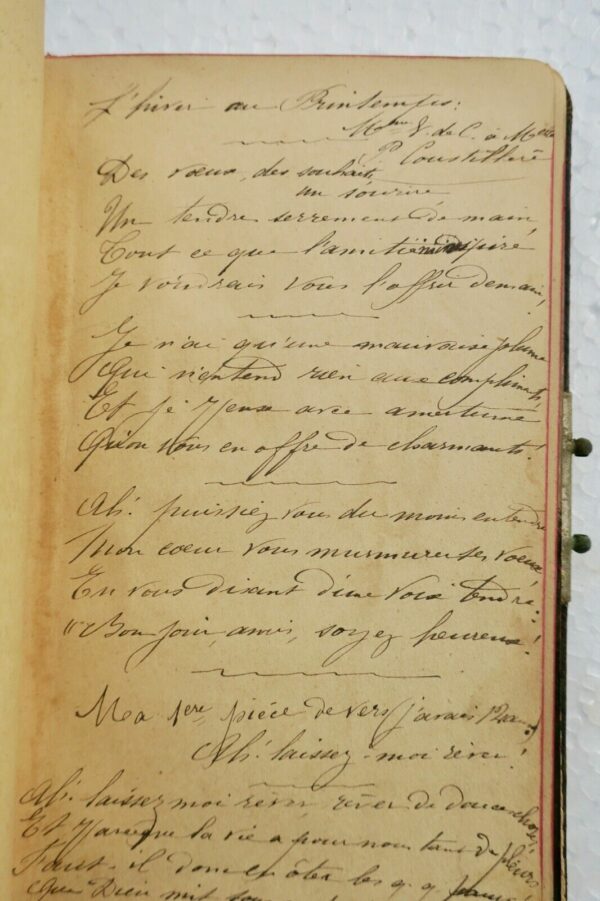 L'hiver au Printemps:
Mme V. de C. à Melle
P. Coustillère
Des vœux, des souhaits,
un sourire
Un tendre serrement de main,
Tout ce que l'amitié inspire
Je voudrais vous l'offrir demain,
Je n'ai qu'une mauvaise plume
Qui n'entend rien aux compliments,
Et je pense avec amertume
Qu'on vous en offre de charmants!
Ah! puissiez vous du moins entendre
Mon cœur vous murmurer ses vœux
En vous disant d'une voix tendre:
"Bonjour, amis, soyez heureux!
Ma 1ère pièce de vers (j'avais 12 ans)
Ah! laissez-moi rêver!
Ah! laissez moi rêver, rêver de douces choses
Et la vie a pour nous tant de pleurs
Faut-il donc en ôter les q.q.
Que Dieu mit